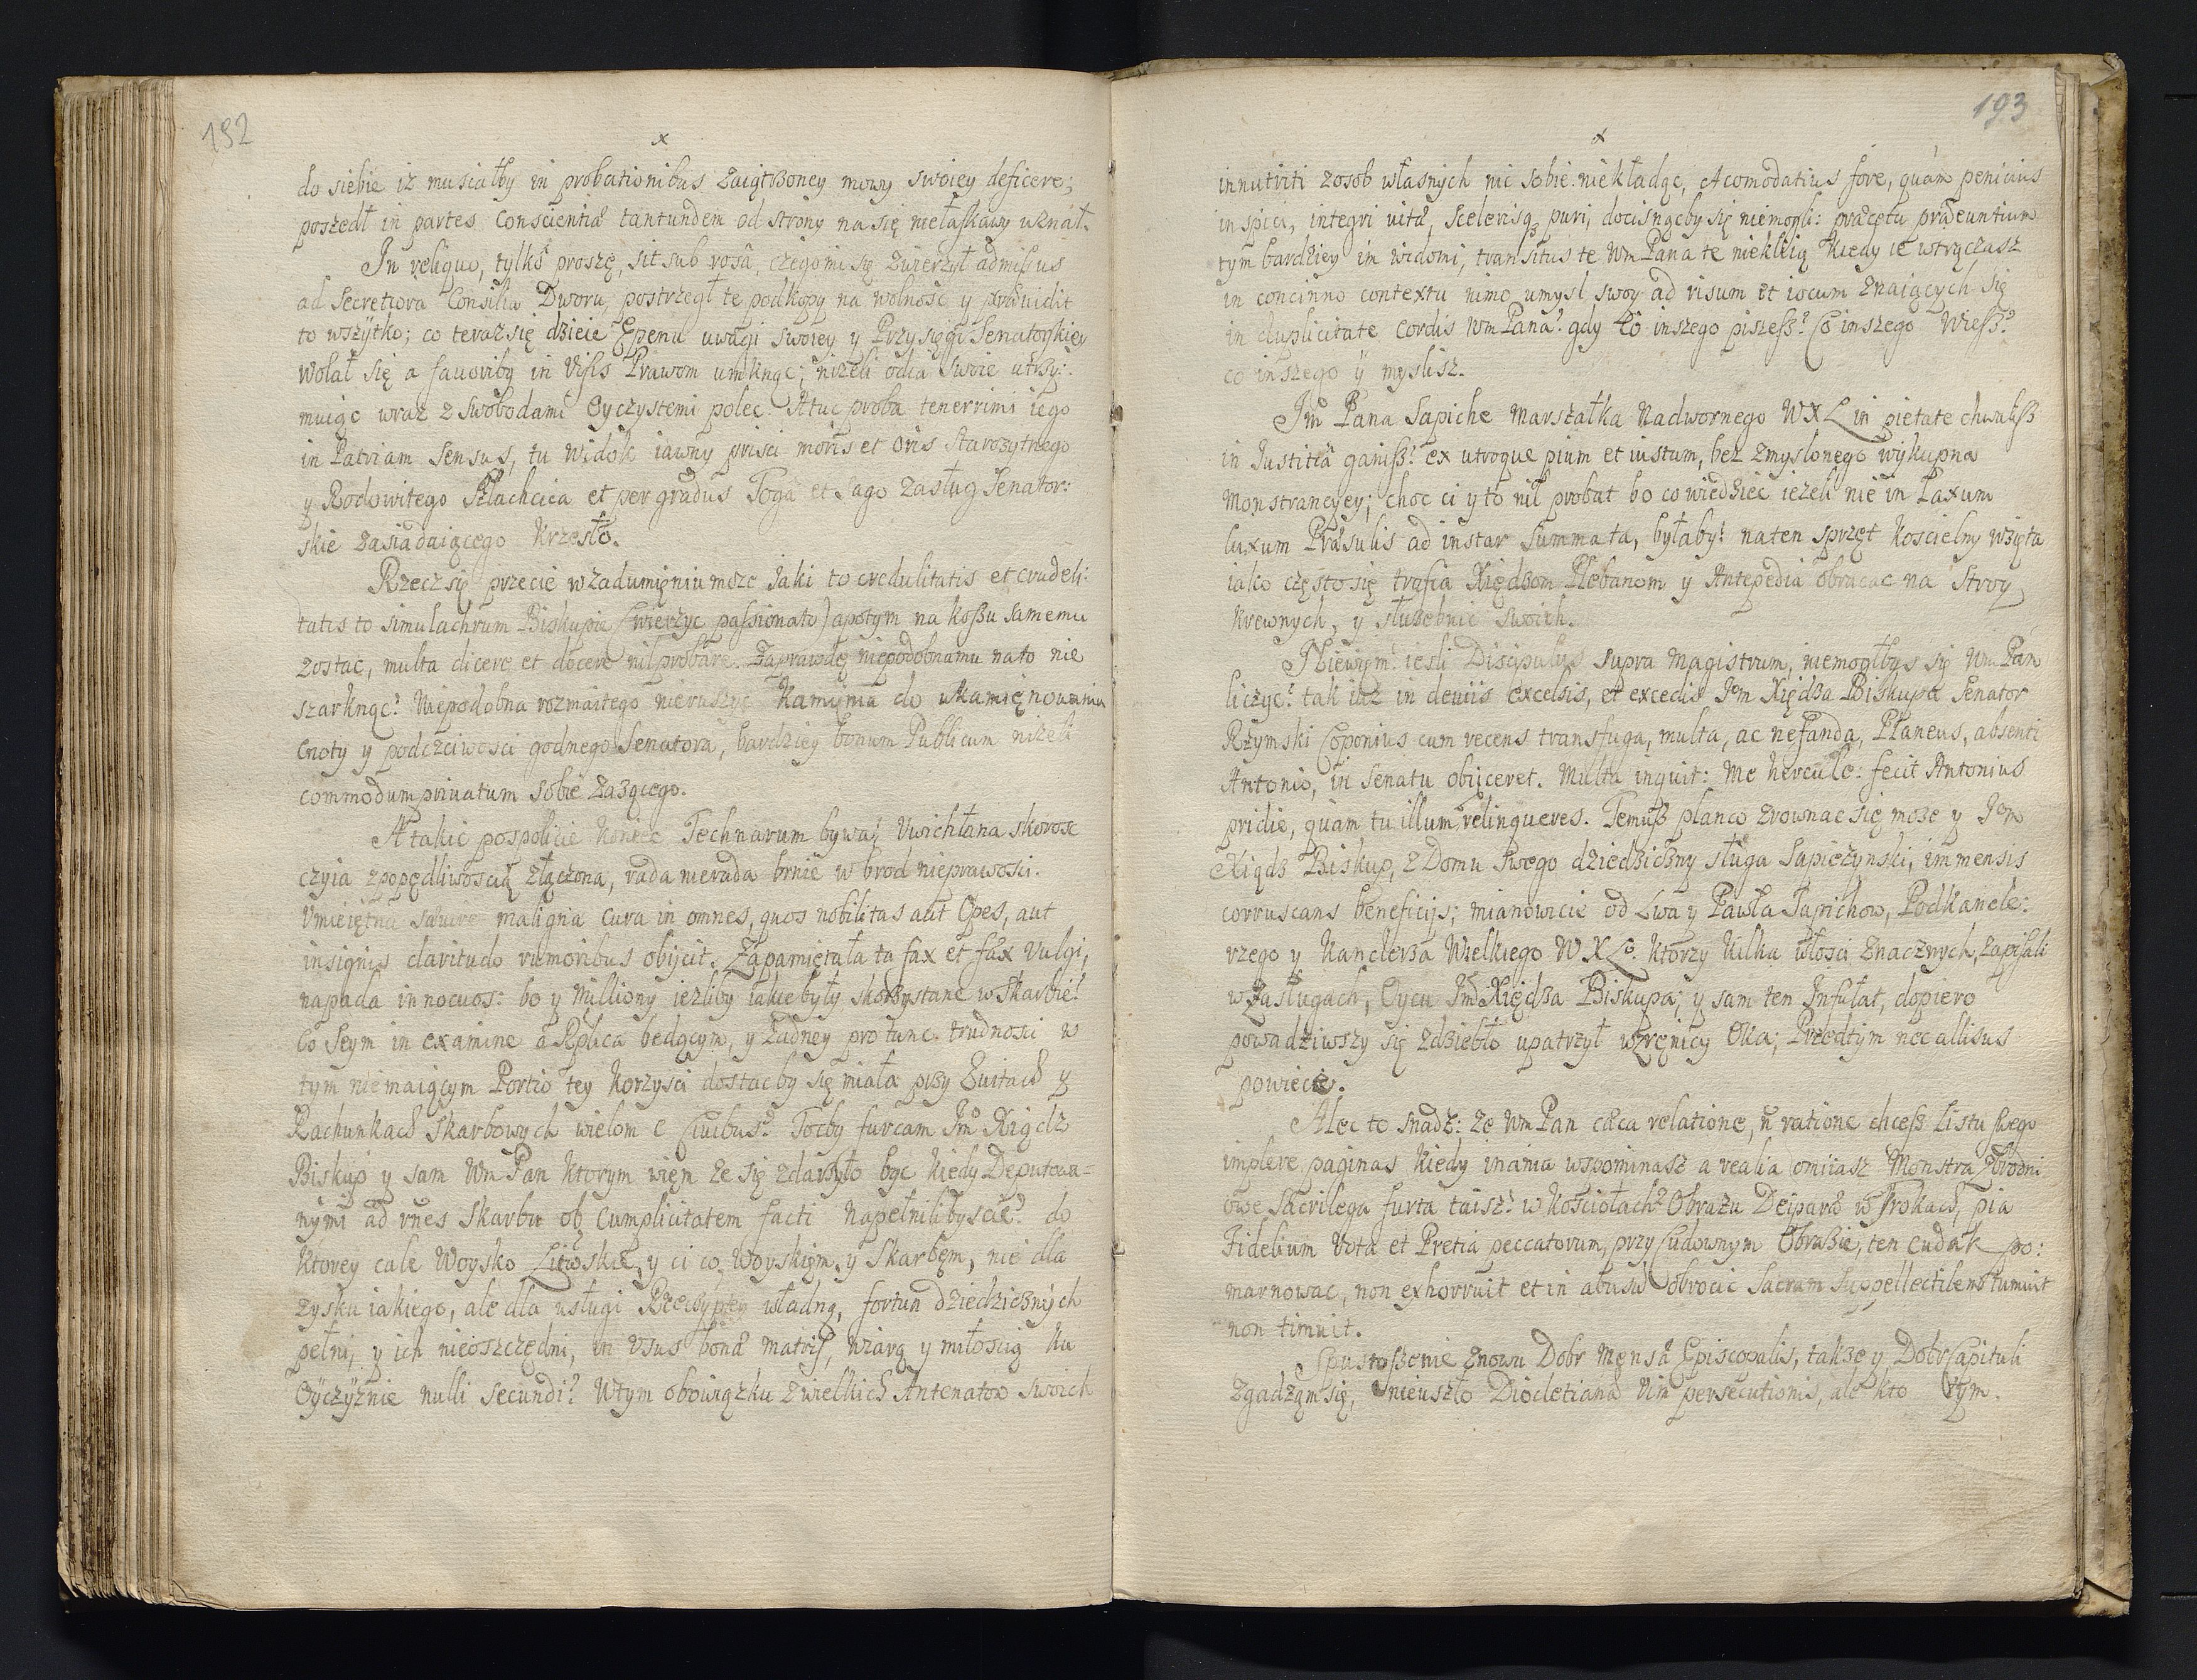 192
x
do siebie iz musiałby in probationibus zaiątrzoney mowy swoiey deficere;
poszedł in partes Conscientiæ tantundem od strony na się niełaskawy uznał.
In reliquo, tylko proszę, sit sub rosâ, czego mi się zwierzył admissus
ad Secretiora Consilia Dworu, postrzegł te podkopy na wolnosc y præuidit
to wszytko; co teraz się dzieie uwagi swoiey y Przysięgi Senatorskiey
Wolał się a fauoribg in Visis Prawom umknąc; nizeli odia swoie utrzy:
muiąc wraz z swobodami Oyczystemi polec. A tuc proba tenerrimi iego
in Patriam Sensus, tu widok iawny prisci moris et Oris Starozytnego
y Rodowitego Szlachcica et per gradus Toga et Sago zasług Senator:
skie zasiadaiącego Krzesło.
Rzecz się przecie w zadumięniu moze Jaki to credulitatis et crudeli:
tatis to simulachrum Biskupie (wierzyc passionato) a potym na koszu samemu
zostac, multa dicere et docere nil probare. Zaprawdę niepodobna mu na to nie
szarknąc? Niepodobna rozmaitego nieruszyc Kamięnia do ukamięnowania
Cnoty y podczciwosci godnego Senatora, bardziey bonum Publicum nizeli
commodum priuatum sobie Zazącego.
A takic pospolicie koniec Technarum bywa; Uwichłana skorosc
czyia z popędliwoscią złączona, rada nierada brnie w brod nieprawosci.
Umieiętna maligna cura in omnes, quos nobilitas aut Opes, aut
insignis claritudo rumoribus obijcit. Zapamiętała ta fax et fæx Vulgi,
napada innocuos: bo y Milliony iezliby takie były skorzystane w Skarbie?
Co Seym in examine a Rplica będącym, y zadney pro tunc trudnosci w
tym niemaiącym Portio tey korzysci dostacby się miała przy Kwitach y
Rachunkach Skarbowych wielom e Ciuibus? Tocby furcam Jm Xiądz
Biskup y sam Wm Pan ktorym więm ze się zdarzyło byc kiedy Deputowa=
nymi ad rnes Skarbu ob Cumplicitatem facti napełnilibyscie? do
ktorey cale Woysko Litoskie, y ci co woyskięm, y Skarbęm, nie dla
zysku iakiego, ale dla usługi Rzeczyptey władną, fortun dziedzicznych
pełni, y ich nieoszczędni, in Usus bonæ matris, wiarą y miłoscią ku
Oyczyznie nulli secundi? W tym obowiązku z wielkich Antenatow swoich
193
x
innutriti z osob własnych nic sobie niekładąc, Acomodatius fore, quàm penicius
inspici, integri vitæ, scelerisq puri, docisnącby się niemogli: præceta præeuntium
tym bardziey im widomi, transitus te Wm Pana te niekleią kiedy ie wtrączasz
in concinno contextu nimo umysl swoy ad risum et iocum znaiących się
in duplicitate Cordis Wm Pana? gdy Co inszego piszesz? Co inszego Wiesz?
co inszego y myslisz.
Jm Pana Sapiche Marszałka Nadwornego WXL in pietate chwalisz
in Justitia ganisz? ex utroque pium et iustum, bez zmyslonego wykupna
Monstrancyey; choc ci y to nil probat bo co wiedziec iezeli nie in Taxum
luxum Præsulis ad instar Summa ta, byłaby? na ten sprzęt koscielny wzięta
iako często się trafia Xiędzom Plebanom y Antepedia obracac na stroy
krewnych, y słuzebnic swoich.
Niewięm? iesli Discipulus supra Magistrum, niemogłbys się Wm Pan
liczyc? tak iuz in deuiis excelsis, et excedis Jem Xiędza Biskupa Senator
Rzymski Coponius cum recens transfuga, multa, ac nefanda, Planeus, absenti
Antonio, in Senatu obijceret. Multa inquit: Me hercule: fecit Antonius
pridie, quàm tu illum relinqueres. Temusz planco zrownac się moze y Jem
Xiądz Biskup, z Domu swego dziedziczny sługa Sapiezynski, immensis
corruscans beneficijs; mianowicie od Lwa y Pawła Sapichow, Podkancle:
rzego y Kanclerza Wielkiego WXLo ktorzy kilka włosci znacznych, zapisali
w zasługach, Oycu Jm Xiędza Biskupa; y sam ten Infułat, dopiero
powadziwszy się zdziebło upatrzył w zręnicy Oka; Przedtym nec allisus
powiecie.
Alec to snadz: Ze Wm Pan cæca relatione, n ratione chcesz Listu swego
implere paginas kiedy inania wspominasz a realia omiiasz Monstra zbrodni
owe Sacrilega furta taisz? w kosciołach? Obrazu Deiparæ w Trokach, pia
Fidelium Vota et Pretia peccatorum, przy Cudownym Obrazie, ten cudak po:
marnowac, non exhorruit et in abusu obrocic Sacram Suppellectilem tumuit
non timuit.
Spustoszenie znowu Dobr Mensæ Episcopalis, takze y Dobr Capituli
zgadząm się, nieuszło Diocletianæ Vim persecutionis, ale kto tym.